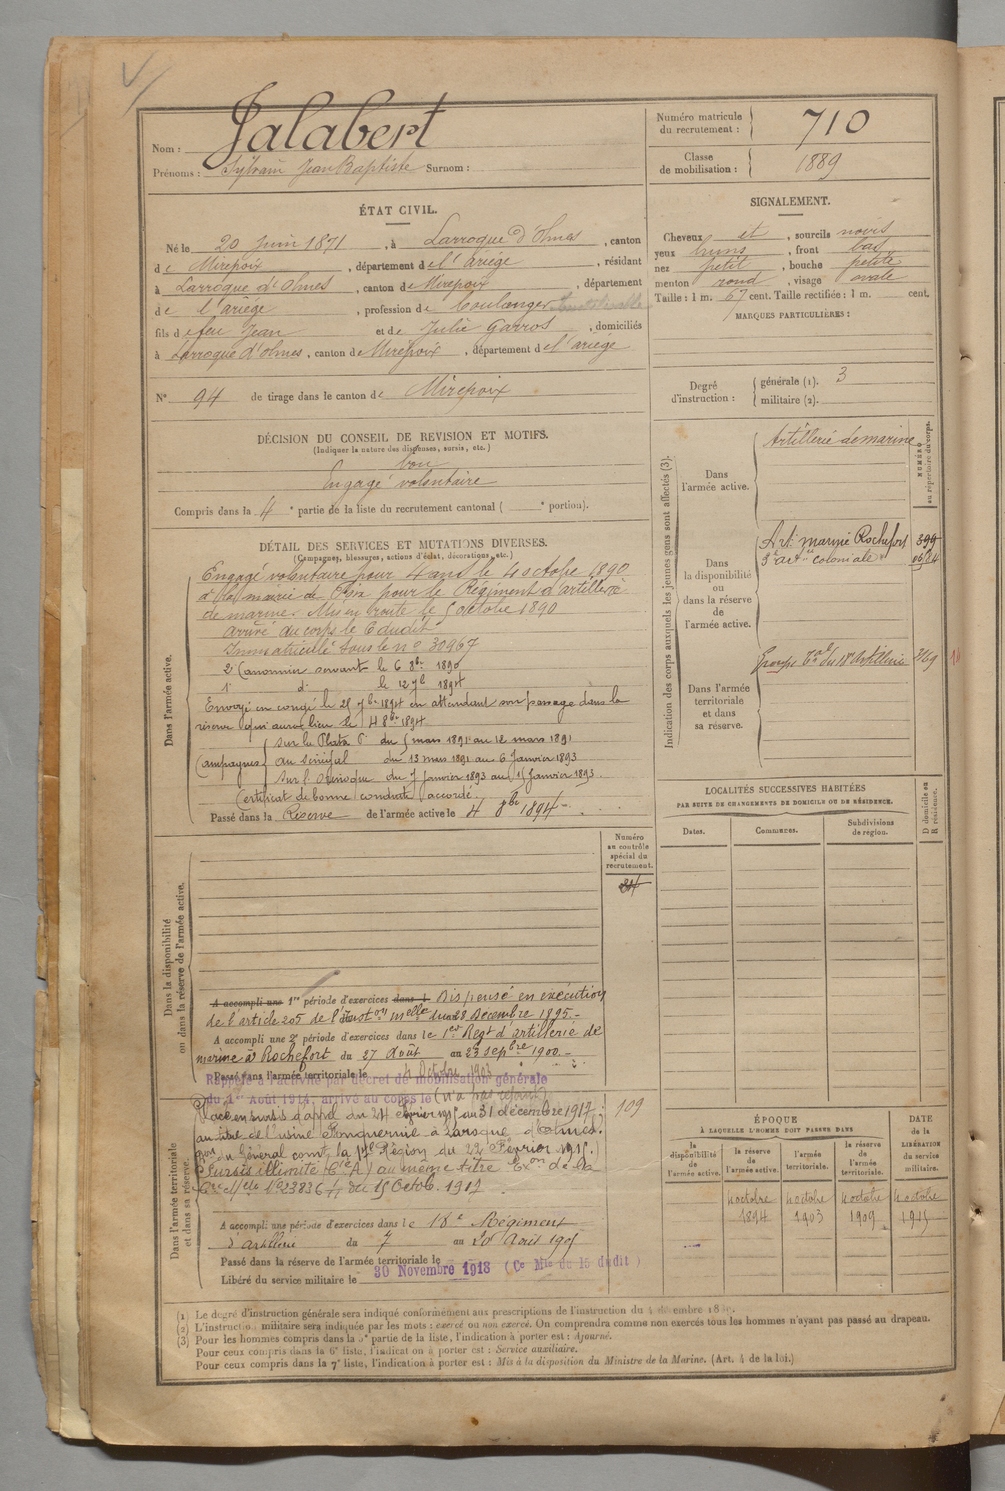 Nom : Jalabert
Prénoms : Sylvain Jean Baptiste Surnom :
Numéro matricule du recrutement : 710
Classe de mobilisation : 1889
ÉTAT CIVIL.
Né le 20 juin 1871, à Larroque d'Olmes, canton
de Mirepoix, département de l'ariège, résidant
à Larroque d'Olmes, canton de Mirepoix, département
de l'ariège, profession de boulanger
fils de feu Jean et de Julie Garros, domiciliés
à Larroque d'olmes, canton de Mirepoix, département de l'ariège
N° 94 de tirage dans le canton de Mirepoix
DÉCISION DU CONSEIL DE REVISION ET MOTIFS.
(Indiquer la nature des dispenses, sursis, etc.)
bon
Engagé volontaire
Compris dans la 4e partie de la liste du recrutement cantonal ( e portion).
SIGNALEMENT.
Cheveux et, sourcils noirs
yeux bruns, front bas
nez petit, bouche petite
menton rond, visage ovale
Taille : 1 m. 67 cent. Taille rectifiée : 1 m. cent.
MARQUES PARTICULIÈRES :
Degré d'instruction : générale (1). 3
militaire (2).
DÉTAIL DES SERVICES ET MUTATIONS DIVERSES.
(Campagnes, blessures, actions d'éclat, décorations, etc.)
Dans l'armée active.
Engagé volontaire pour 4 ans le 4 octobre 1890
à la mairie de Foix pour le Régiment d'artillerie
de marine. Mis en route le 5 octobre 1890
arrivé au corps le 6 dudit
Immatriculé sous le n° 30967
2e Canonnier servant le 6 8bre 1890
1e d° le 12 7b 1894
Envoyé en congé le 25 7bre 1894 en attendant son passage dans la
réserve qui aura lieu le 4 8bre 1894
Campagnes sur la Plata du 5 mars 1891 au 12 mars 1891
au sénégal du 13 mars 1891 au 6 Janvier 1893
sur l' du 7 Janvier 1893 au 15 Janvier 1893.
Certificat de bonne conduite accordé
Passé dans la Réserve de l'armée active le 4 8bre 1894
Indication des corps auxquels les jeunes gens sont affectés (3).
NUMÉRO au répertoire du corps.
Dans l'armée active.
Artillerie de marine
Dans la disponibilité ou dans la réserve de l'armée active.
Art. marine Rochefort 399
3e artie coloniale 0624
Dans l'armée territoriale et dans sa réserve.
Groupe tal du 18e Artillerie 2169
LOCALITÉS SUCCESSIVES HABITÉES
PAR SUITE DE CHANGEMENTS DE DOMICILE OU DE RÉSIDENCE.
Dates. Communes. Subdivisions de région. D domicile ou R résidence.
Numéro au contrôle spécial du recrutement.
Dans la disponibilité ou dans la réserve de l'armée active.
A accompli une 1re période d'exercices dans l Dispensé en exécution
de l'article 205 de l'Inston melle du 28 Décembre 1895.-
A accompli une 2e période d'exercices dans le 1er Régt d'artillerie de
marine à Rochefort du 27 Août au 23 sepbre 1900.-
Passé dans l'armée territoriale le 4 Octobre 1903
Rappelé à l'activité par décret de mobilisation générale
du 1er Août 1914, arrivé au corps le (n'a pas rejoint)
Dans l'armée territoriale et dans sa réserve.
Placé en sursis d'appel du 24 février 1915 au 31 décembre 1917
au titre de l'usine à Laroque d'olmes.
on du Général comt la 17e Région du 22 Février 1915.)
Sursis illimité (Cie A) au même titre Exon de la
Cre Melle N° 23836 1/11 du 15 Octob. 1917
109
A accompli une période d'exercices dans le 18e Régiment
d'artillerie du 7 au 20 Avril 1905
Passé dans la réserve de l'armée territoriale le
Libéré du service militaire le 30 Novembre 1918 (Ce Mle du 15 dudit)
ÉPOQUE
À LAQUELLE L'HOMME DOIT PASSER DANS
la disponibilité de l'armée active.
la réserve de l'armée active.
l'armée territoriale.
la réserve de l'armée territoriale.
DATE de la LIBÉRATION du service militaire.
4 octobre 1894
4 octobre 1903
4 octobre 1909
4 octobre 1915
(1) Le degré d'instruction générale sera indiqué conformément aux prescriptions de l'instruction du 4 décembre
(2) L'instruction militaire sera indiquée par les mots : exercé ou non exercé. On comprendra comme non exercés tous les hommes n'ayant pas passé au drapeau.
(3) Pour les hommes compris dans la 5e partie de la liste, l'indication à porter est : Ajourné.
Pour ceux compris dans la 6e liste, l'indication à porter est : Service auxiliaire.
Pour ceux compris dans la 7e liste, l'indication à porter est : Mis à la disposition du Ministre de la Marine. (Art. 4 de la loi.)